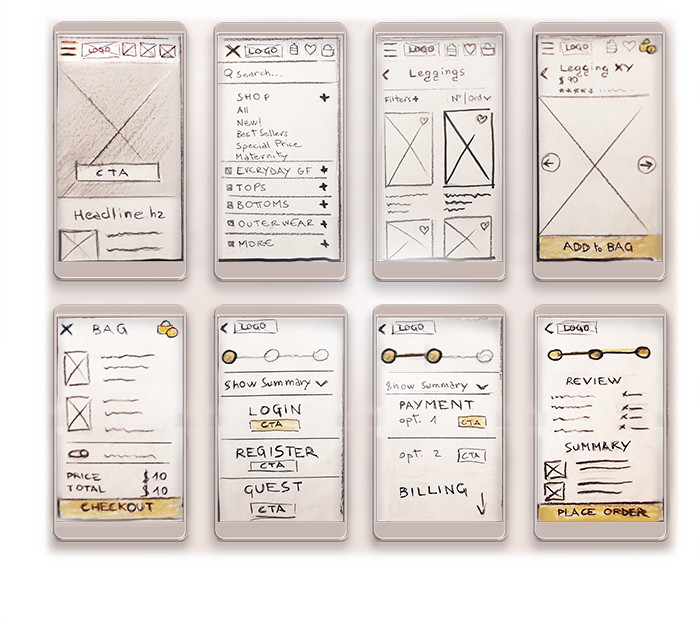 LOGO
CTA
Headline h2
LOGO
Search...
SHOP +
All
New!
Best Sellers
Special Price
Maternity
EVERYDAY GF +
TOPS +
BOTTOMS +
OUTERWEAR +
MORE +
LOGO
Leggings
Filters +
N° | Ord
LOGO
Legging XY
$ 90
ADD to BAG
BAG
PRICE $10
TOTAL $10
CHECKOUT
LOGO
Show Summary
LOGIN
CTA
REGISTER
CTA
GUEST
CTA
LOGO
Show Summary
PAYMENT
opt. 1 CTA
opt. 2 CTA
BILLING
LOGO
REVIEW
SUMMARY
PLACE ORDER